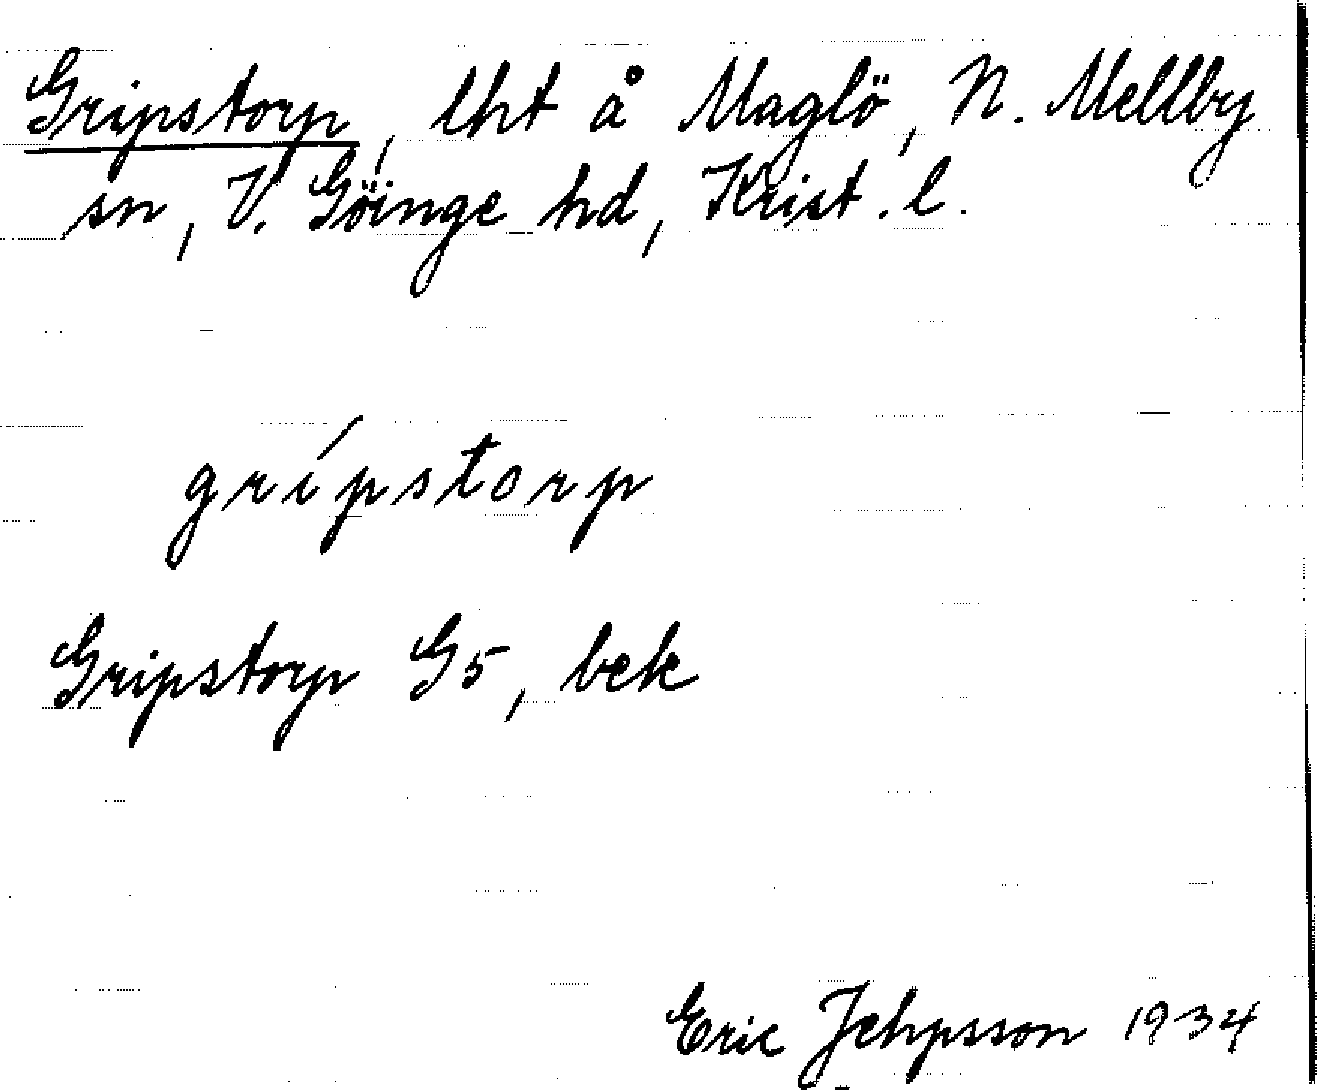 Gripstorp, lht å Maglö, N. Mellby
sn, V. Göinge hd, Krist. l.
grípstorp
Gripstorp G5, bek
Eric Jehpsson 1934